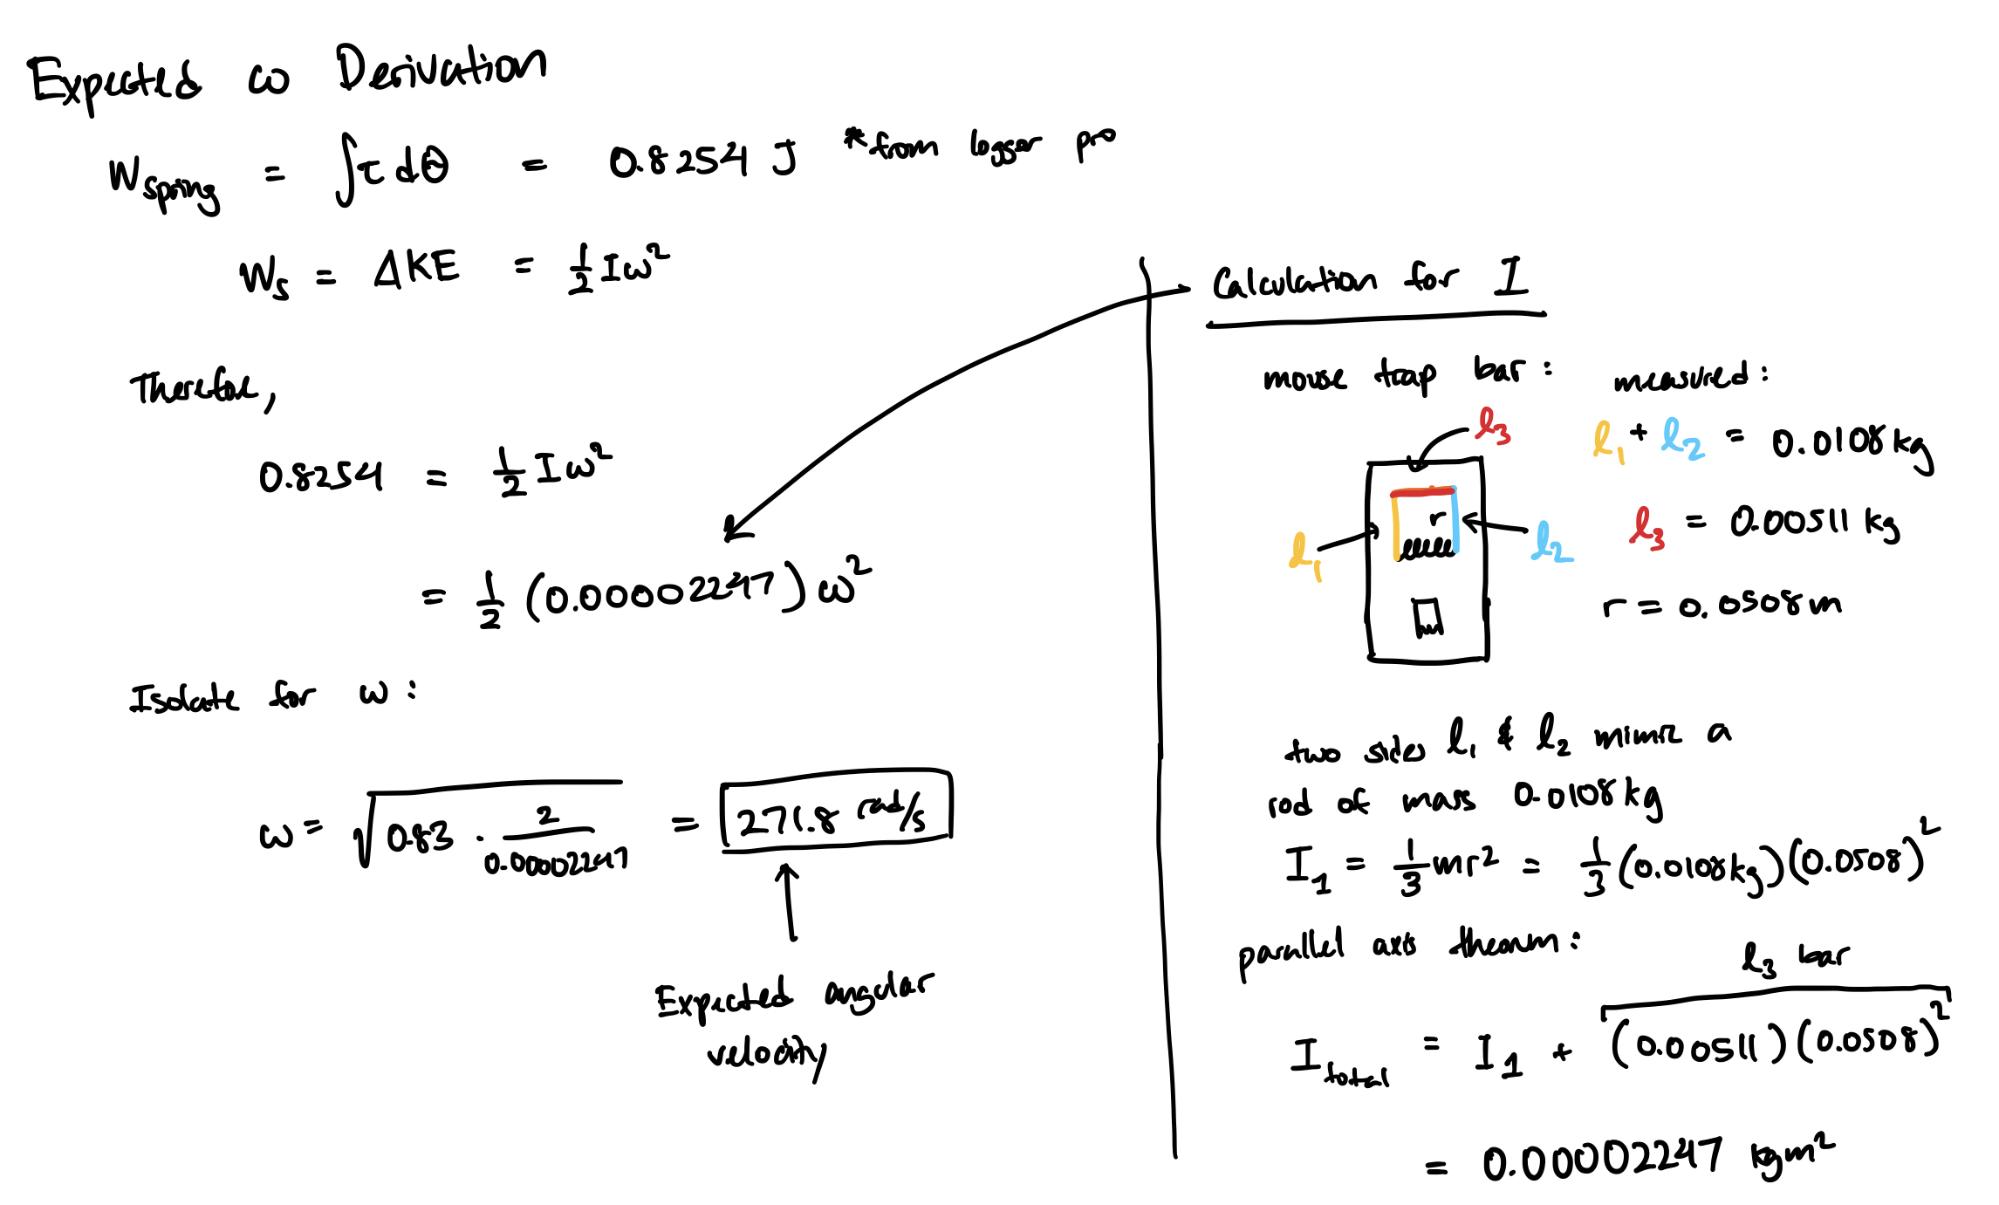 Expected ω Derivation
W_spring = ∫τ dθ = 0.8254 J *from logger pro
W_s = ΔKE = 1/2 Iω²
Therefore,
0.8254 = 1/2 Iω²
= 1/2 (0.00002247) ω²
Isolate for ω :
ω = √(0.83 · 2/0.00002247) = 271.8 rad/s
Expected angular
velocity
Calculation for I
mouse trap bar :
l₃
l₁
r
l₂
measured :
l₁ + l₂ = 0.0108 kg
l₃ = 0.00511 kg
r = 0.0508 m
two sides l₁ & l₂ mimic a
rod of mass 0.0108 kg
I₁ = 1/3 mr² = 1/3 (0.0108kg)(0.0508)²
parallel axis theorem :
l₃ bar
I_total = I₁ + (0.00511)(0.0508)²
= 0.00002247 kgm²